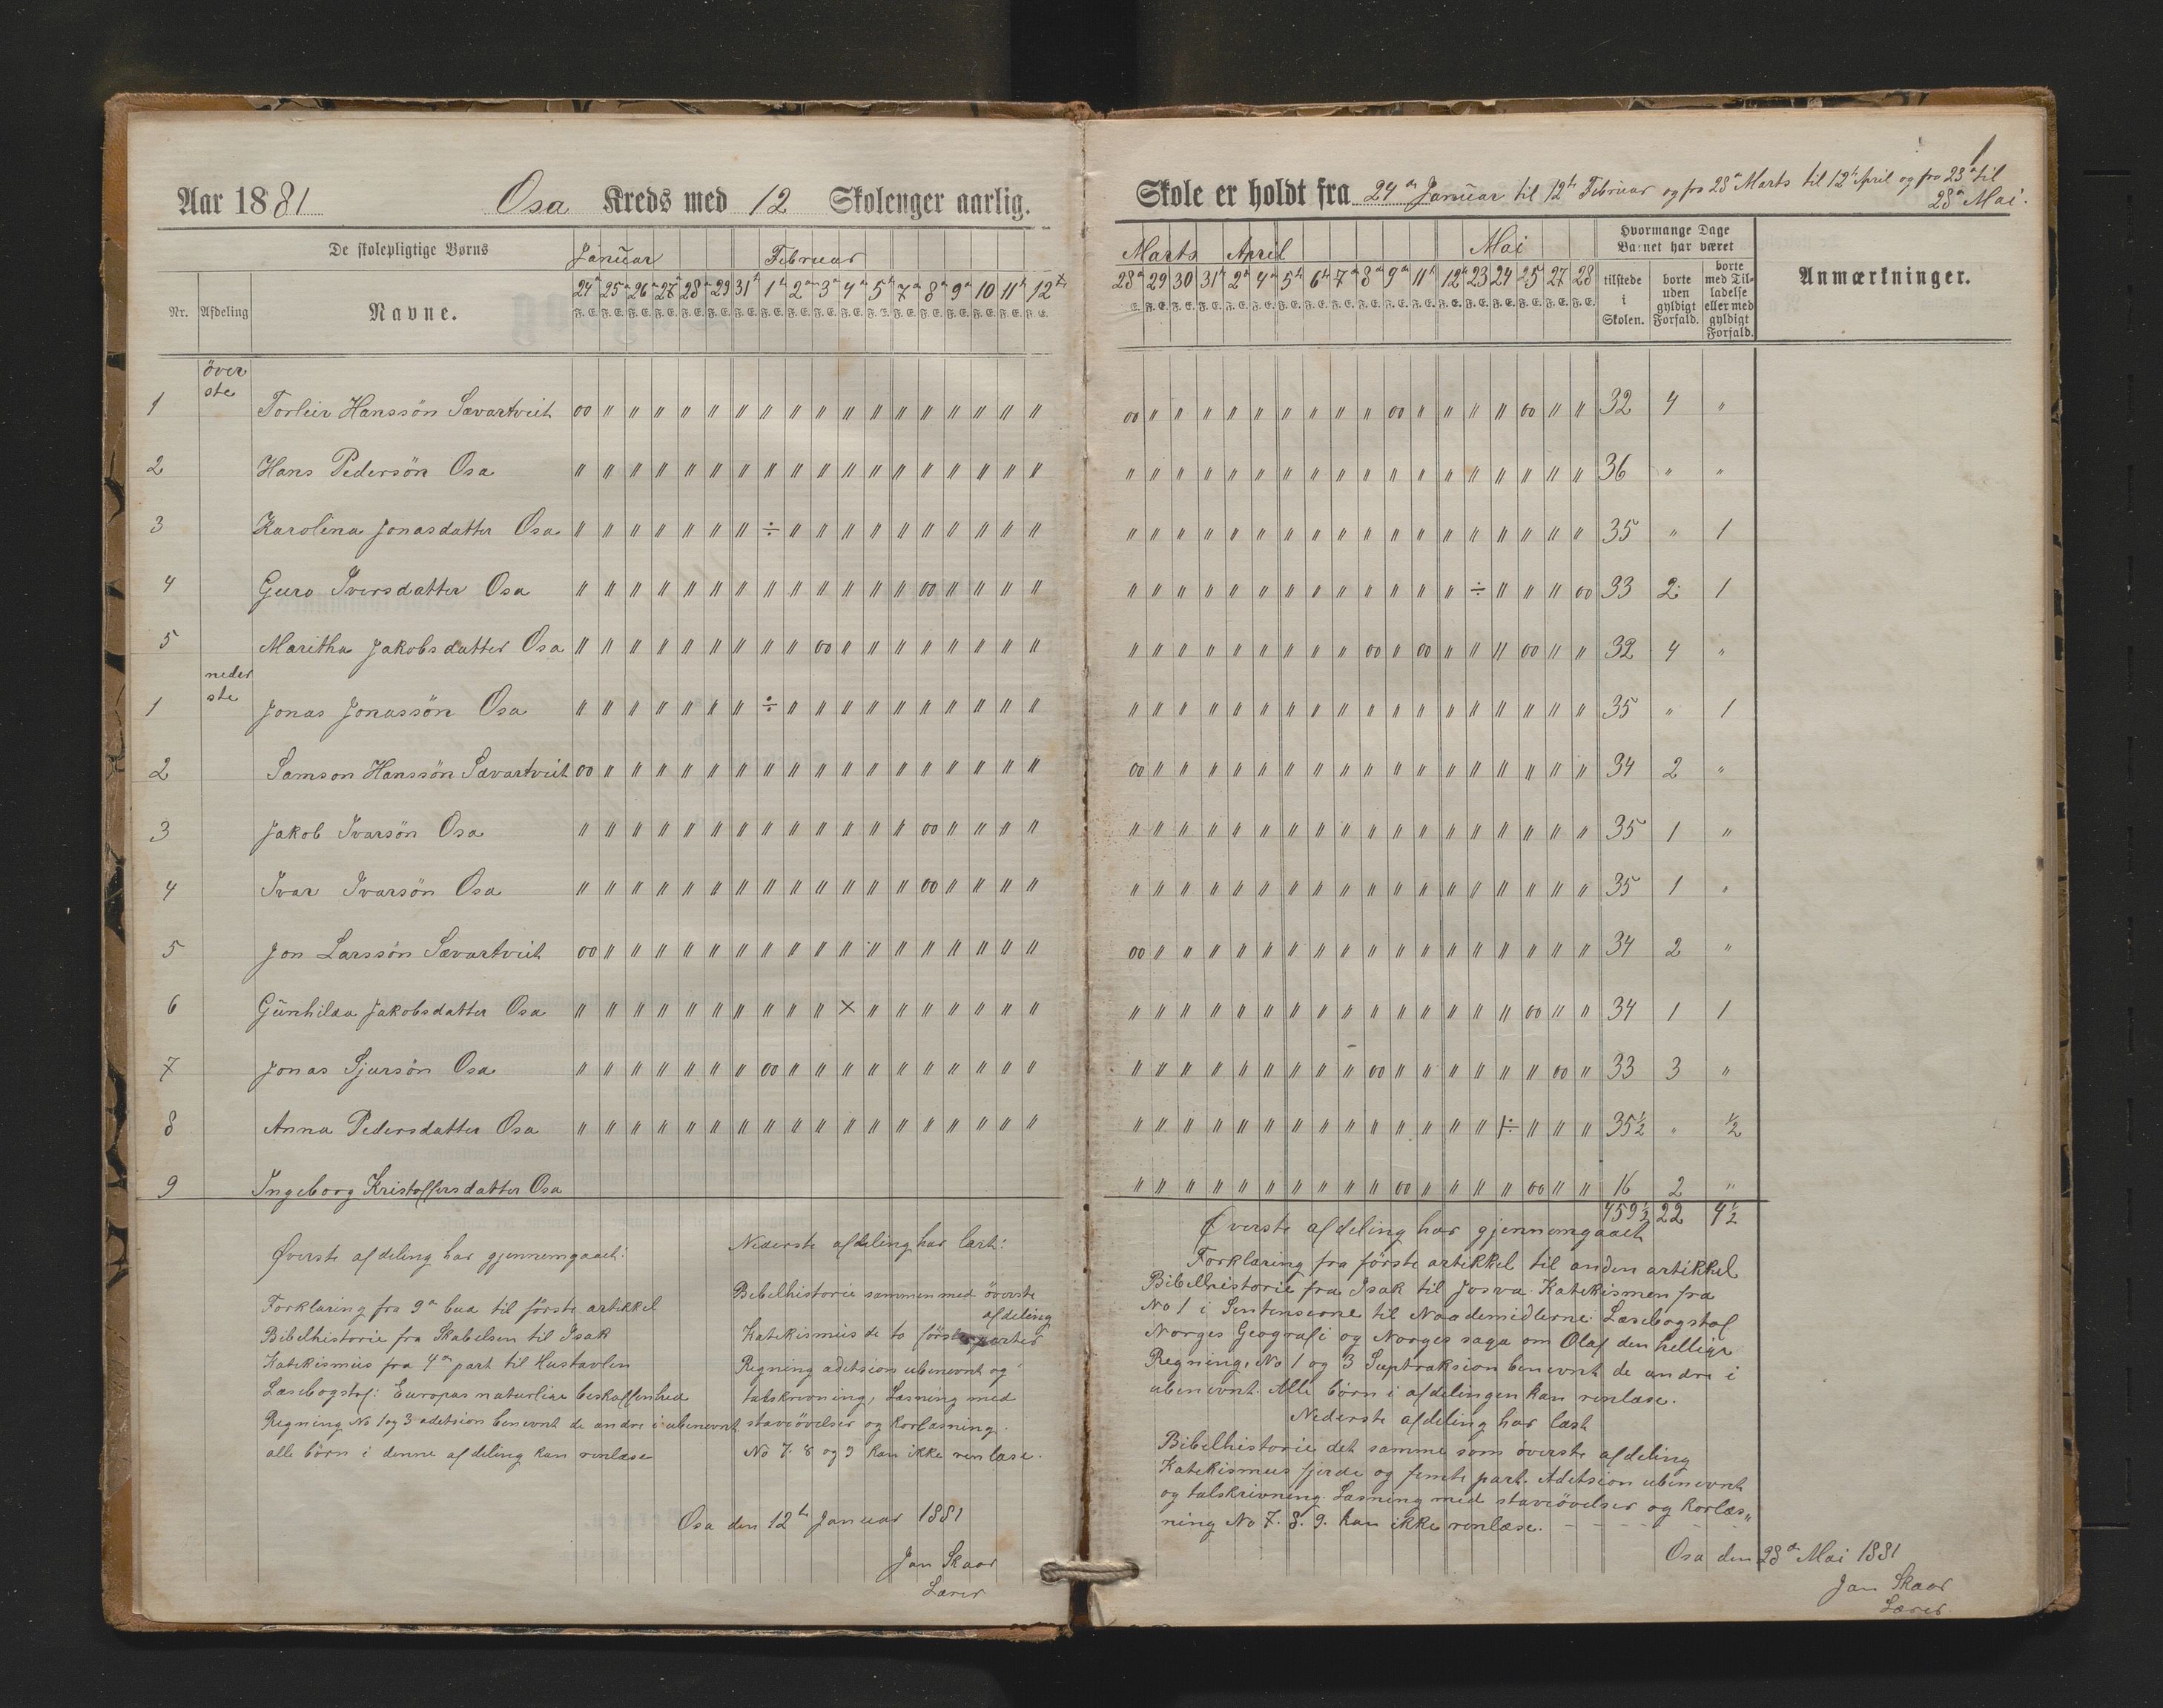 Aar 1881 Osa Kreds med 12 Skolenger aarlig.
De skolepligtige Børns Januar Februar
Nr. Afdeling Navne. 24 25 26 27 28 29 31 1 2 3 4 5 7 8 9 10 11 12
F. E. F. E. F. E. F. E. F. E. F. E. F. E. F. E. F. E. F. E. F. E. F. E. F. E. F. E. F. E. F. E. F. E. F. E.
över
ste
1 Torleir Hanssön Sævartveit oo " " " " " " " " " " " " " " " " "
2 Hans Pedersön Osa " " " " " " " " " " " " " " " " " "
3 Karolina Jonasdatter Osa " " " " " " " ÷ " " " " " " " " " "
4 Guro Iversdatter Osa " " " " " " " " " " " " " oo " " " "
5 Maritha Jakobsdatter Osa " " " " " " " " " oo " " " " " " " "
neder
ste
1 Jonas Jonassön Osa " " " " " " " ÷ " " " " " " " " " "
2 Samson Hanssön Sævartveit oo " " " " " " " " " " " " " " " " "
3 Jakob Ivarsön Osa " " " " " " " " " " " " " oo " " " "
4 Ivar Ivarsön Osa " " " " " " " " " " " " " oo " " " "
5 Jon Larssön Sævartveit oo " " " " " " " " " " " " " " " " "
6 Gunhilda Jakobsdatter Osa " " " " " " " " " " × " " " " " " "
7 Jonas Sjursön Osa " " " " " " " oo " " " " " " " " " "
8 Anna Pedersdatter Osa " " " " " " " " " " " " " " " " " "
9 Ingeborg Kristoffersdatter Osa
Øverste afdeling har gjennemgaaet:
Forklaring fra 9de bud til förste artikkel
Bibelhistorie fra Skabelsen til Isak
Katekismus fra 4de part til Hustavlen
Læsebogstof: Europas naturlige beskaffenhed
Regning No 1 og 3 adetsion benevnt de andre i ubenevnt
alle börn i denne afdeling kan renlæse
Nederste afdeling har læst:
Bibelhistorie sammen med överste
afdeling
Katekismus de to förste parter
Regning adetsion ubenevnt og
talskrivning, Læsning med
staveövelser og Korlæsning.
No 7. 8 og 9 kan ikke renlæse.
Osa den 12te Januar 1881
Jan Skaar
Lærer
1
Skole er holdt fra 24de Januar til 12te Februar og fra 28de Marts til 12te April og fra 23de til
28de Mai.
Marts April Mai Hvormange Dage
Barnet har været
28 29 30 31 2 4 5 6 7 8 9 11 12 23 24 25 27 28 tilstede i Skolen. borte uden gyldigt Forfald. borte med Tilladelse eller med gyldigt Forfald. Anmærkninger.
E. F. E. F. E. F. E. F. E. F. E. F. E. F. E. F. E. F. E. F. E. F. E. F. E. F. E. F. E. F. E. F. E. F. E.
oo " " " " " " " " " oo " " " " oo " " 32 4 "
" " " " " " " " " " " " " " " " " " 36 " "
" " " " " " " " " " " " " " " " " " 35 " 1
" " " " " " " " " " " " " ÷ " " " oo 33 2 1
" " " " " " " " " oo " oo " " " oo " " 32 4 "
" " " " " " " " " " " " " " " " " " 35 " 1
oo " " " " " " " " " " " " " " " " " 34 2 "
" " " " " " " " " " " " " " " " " " 35 1 "
" " " " " " " " " " " " " " " " " " 35 1 "
oo " " " " " " " " " " " " " " " " " 34 2 "
" " " " " " " " " " " " " " " oo " " 34 1 1
" " " " " " " " " oo " " " " " " oo " 33 3 "
" " " " " " " " " " " " " " 1÷ " " " 35½ " ½
" " " " " " " " " " oo " " " " oo " " 16 2 "
459½ 22 4½
Øverste afdeling har gjennemgaaet
Forklaring fra förste artikkel til anden artikkel
Bibelhistorie fra Isak til Josva. Katekismen fra
No 1 i Sentenserne til Naademidlerne. Læsebogstof
Norges Geografi og Norges saga om Olaf den hellige
Regning, No 1 og 3 Suptraksion benevnt de andre i
ubenevnt. Alle börn i afdelingen kan renlæse.
Nederste afdeling har læst
Bibelhistorie det samme som överste afdeling
Katekismus fjerde og femte part. Adetsion ubenevnt
og talskrivning. Læsning med staveövelser og Korlæs"
ning No 7. 8. 9. kan ikke renlæse.
Osa den 28de Mai 1881
Jan Skaar
Lærer